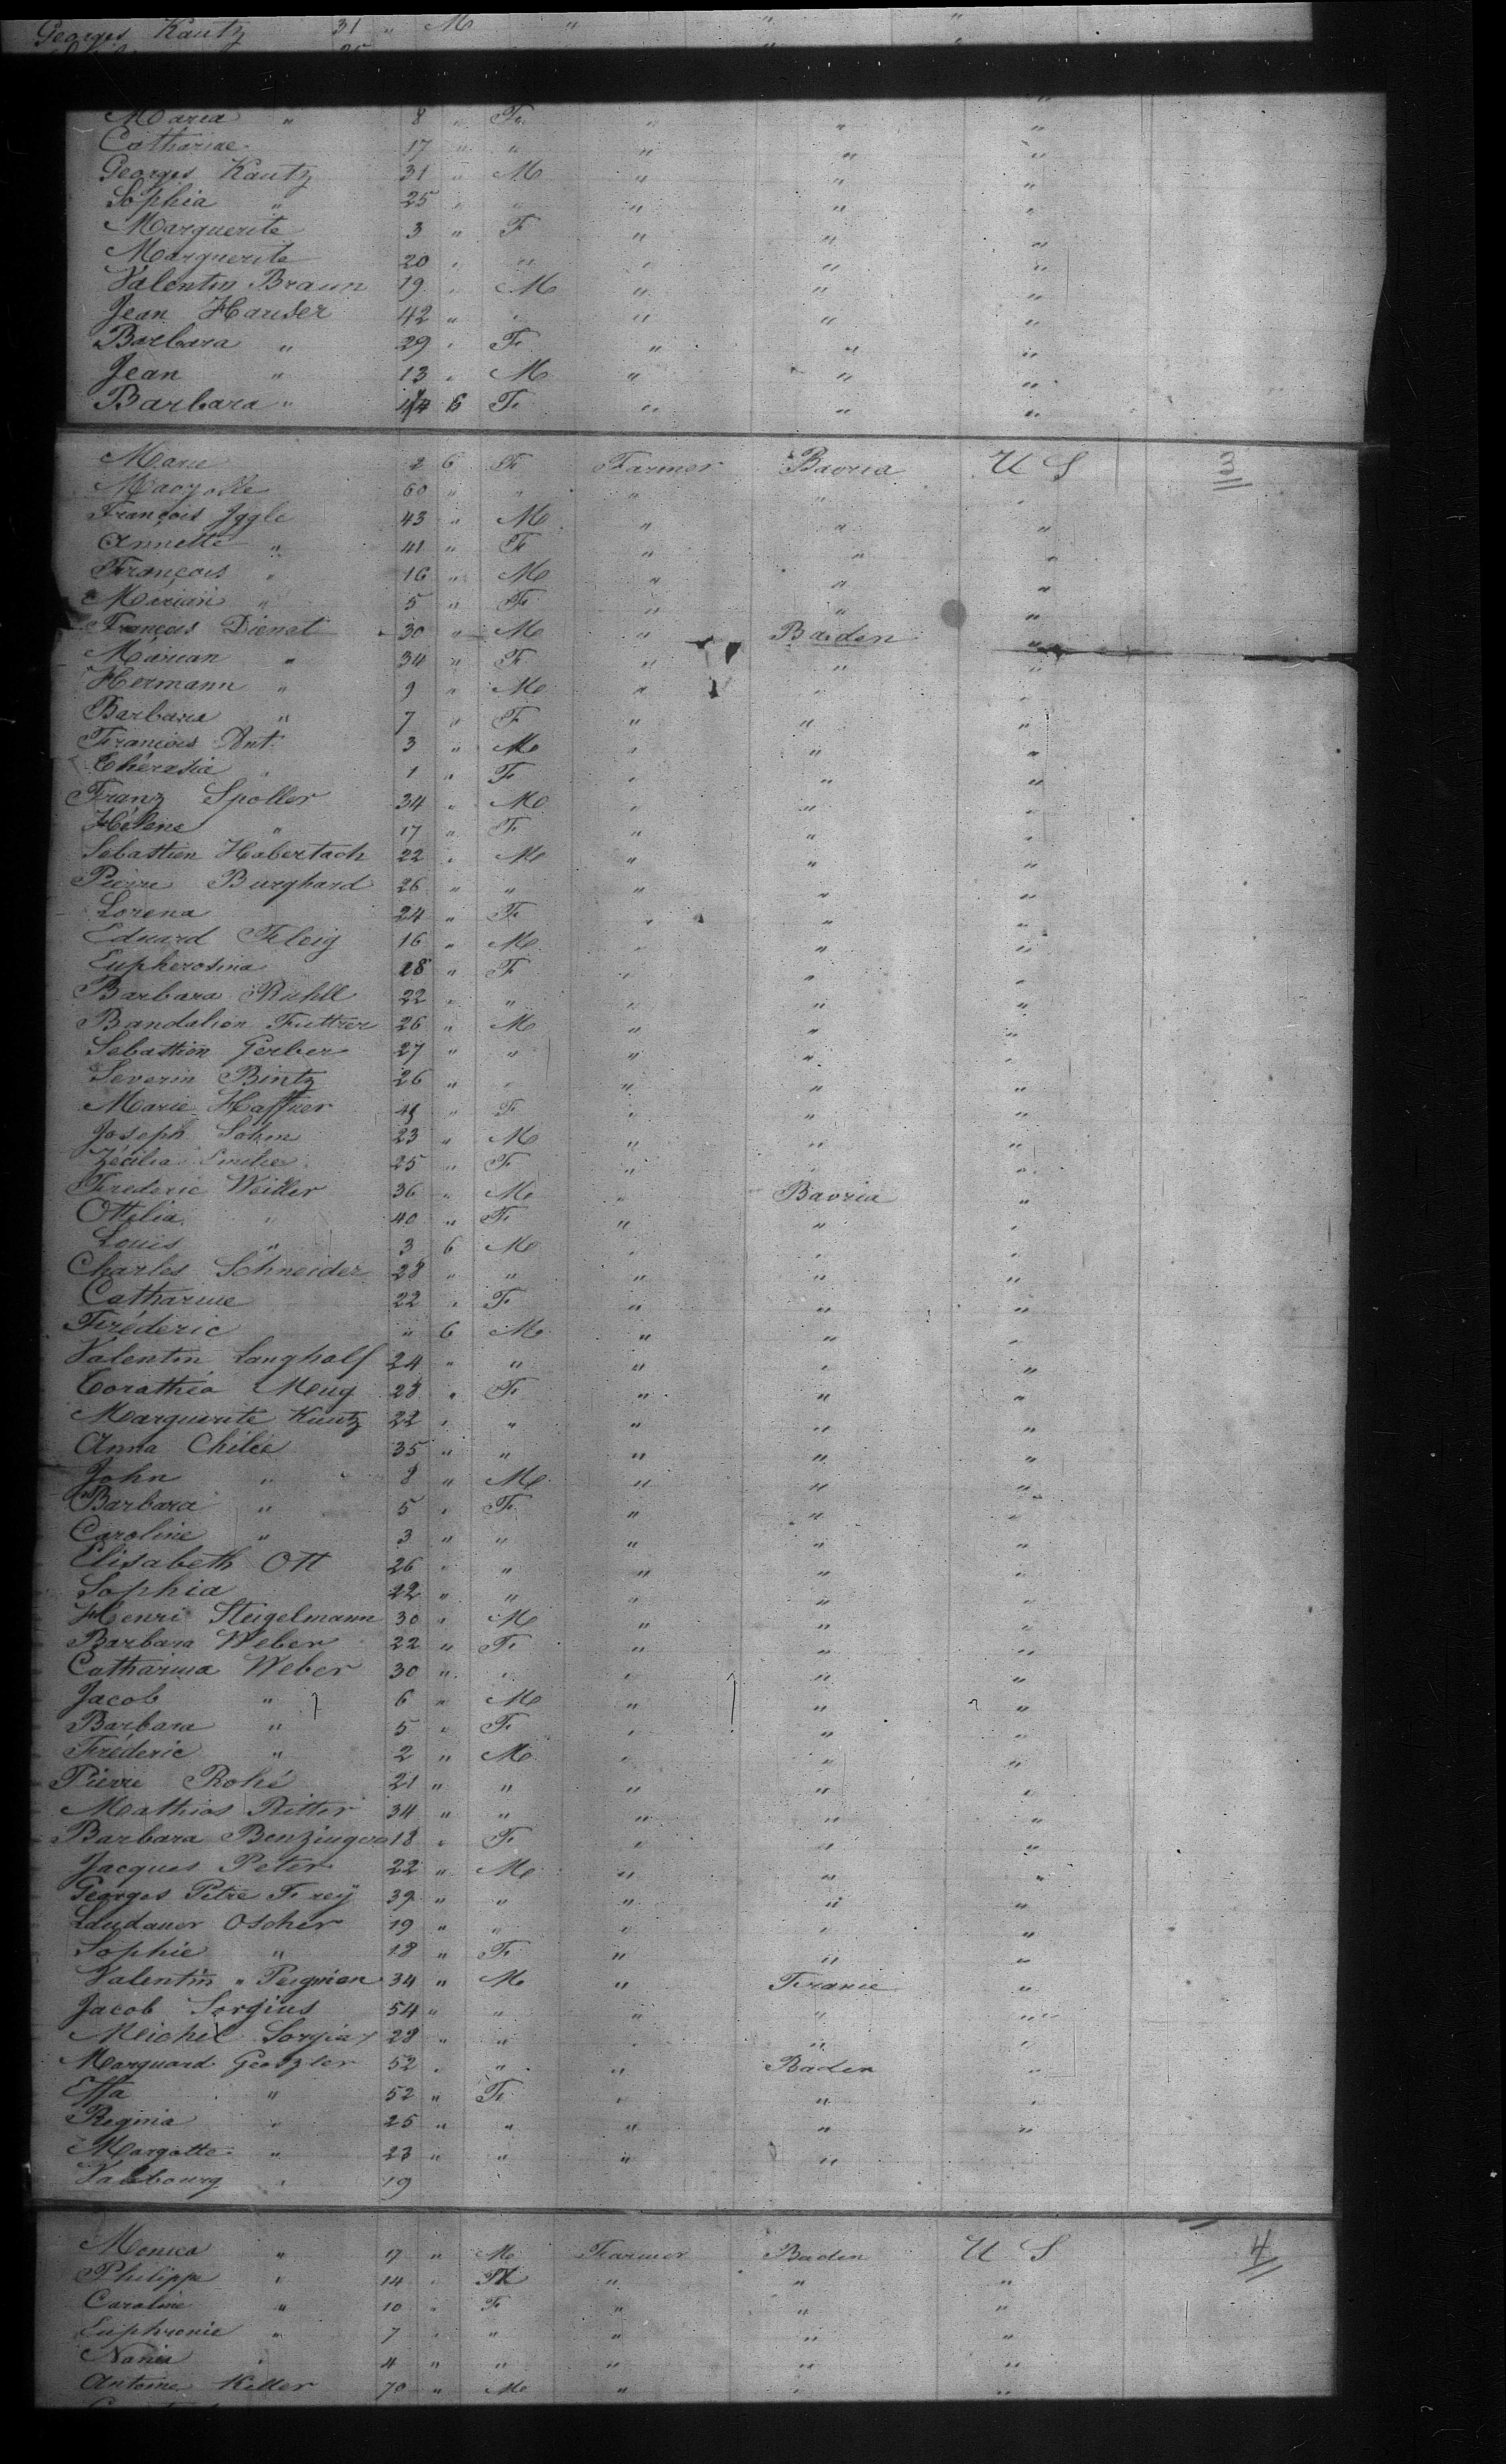 Georges Kautz 31 " M " " "
Maria " 8 " F " " "
Catharine 17 " " " " "
Georges Kautz 31 " M " " "
Sophia " 25 " " " " "
Marguerite 3 " F " " "
Marguerite 20 " " " " "
Valentin Braun 19 " M " " "
Jean Hauser 42 " " " " "
Barbara " 29 " F " " "
Jean " 13 " M " " "
Barbara " 6 F " " "
Marie 2 6 F Farmer Bavria U S 3
60 " " " " "
François Iggle 43 " M " " "
Annette " 41 " F " " "
François " 16 " M " " "
Mirian " 5 " F " " "
François Dienat 30 " M " Baden "
Marian " 34 " F " " "
Hermann " 9 " M " " "
Barbara " 7 " F " " "
François Ant. 3 " M " " "
Thérasia " 1 " F " " "
Franz Spoller 34 " M " " "
Hélene " 17 " F " " "
Sebastien Habertach 22 " M " " "
Pierre Burghard 26 " " " " "
Lorena 24 " F " " "
Eduard Fleig 16 " M " " "
Eupherosina 18 " F " " "
Barbara Rühll 22 " " " " "
Bandalion Futtrer 26 " M " " "
Sebastien Gerber 27 " " " " "
Severin Bintz 26 " " " " "
Marie Haffner " F " " "
Joseph Sohm 23 " M " " "
Zécilia Emilie 25 " F " " "
Frederic Weiller 36 " M " Bavria "
Ottilia " 40 " F " " "
Louis " 3 6 M " " "
Charles Schneider 28 " " " " "
Catharine 22 " F " " "
Fréderic " 6 M " " "
Valentin Langhalf 24 " " " " "
Torathea Meug 28 " F " " "
Marguerite Kuntz 22 " " " " "
Anna Chilee 35 " " " " "
John " 8 " M " " "
Barbara " 5 " F " " "
Caroline " 3 " " " " "
Elisabeth Ott 26 " " " " "
Sophia 22 " " " " "
Henri Steigelmann 30 " M " " "
Barbara Weber 22 " F " " "
Catharina Weber 30 " " " " "
Jacob " 6 " M " " "
Barbara " 5 " F " " "
Fréderic " 2 " M " " "
Pierre Rohé 21 " " " " "
Mathias Ritter 34 " " " " "
Barbara Benzinger 18 " F " " "
Jacques Peter 22 " M " " "
Georges Petre Freÿ 39 " " " " "
Landauer Oscher 19 " " " " "
Sophie " 18 " F " " "
Valentin " Peignian 34 " M " France "
Jacob Sorgius 54 " " " " "
Meichel Sorgius 28 " " " " "
Marquard Geiszler 52 " " " Baden "
Effa " 52 " F " " "
Regina " 25 " " " " "
Margatte " 23 " " " "
Valbourg " 19
Monica " 17 " M Farmer Baden U S 4
Philippe " 14 " M " " "
Caroline " 10 " F " " "
Euphronie " 7 " " " " "
Naniea " 4 " " " " "
Antoine Keller 70 " M " " "